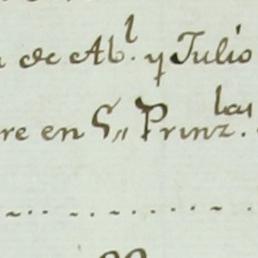 de Ab.l y Julio
re en G,, Prinz.las